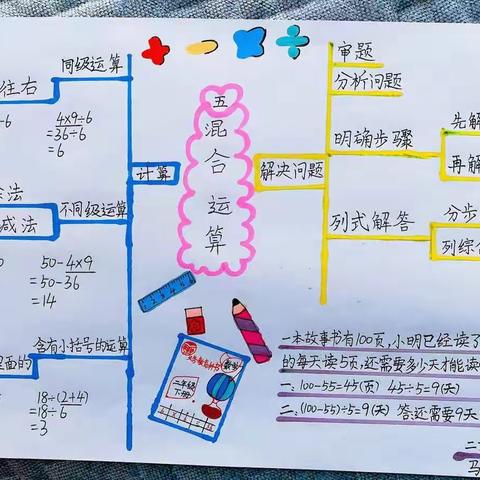 同级运算
往右
4×9÷6
=36÷6
=6
计算
法
减法
不同级运算
50-4×9
=50-36
=14
含有小括号的运算
里面的
18÷(2+4)
=18÷6
=3
五
混
合
运
算
解决问题
审题
分析问题
明确步骤
先解
再解
列式解答
分步
列综合
数学
二年级
下册
一本故事书有100页,小明已经读了
的每天读5页,还需要多少天才能读
一、100-55=45(页) 45÷5=9(天)
二、(100-55)÷5=9(天) 答:还需要9天
二
马